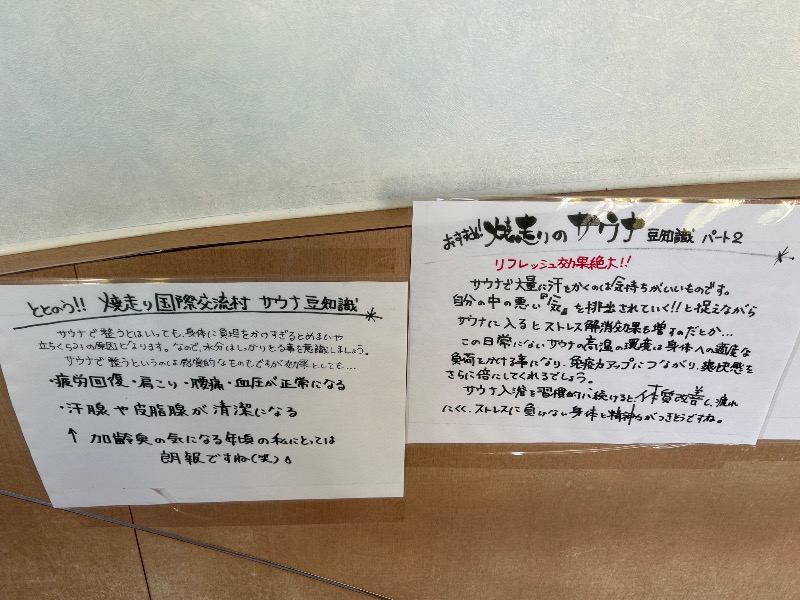 ととのう!! 焼走り国際交流村 サウナ豆知識
サウナで整うとはいっても、身体に負担をかけすぎるとめまいや
立ちくらみの原因となります。なので、水分はしっかりとる事を意識しましょう。
サウナで整うというのは感覚的なものもですが効果としても…
・疲労回復・肩こり・腰痛・血圧が正常になる
・汗腺や皮脂腺が清潔になる
↑ 加齢臭の気になる年頃の私にとっては
朗報ですね(笑)。
おすすめ! 焼走りのサウナ 豆知識 パート2
リフレッシュ効果絶大!!
サウナで大量に汗をかくのは気持ちがいいものです。
自分の中の悪い『気』を排出されていく!!と捉えながら
サウナに入るとストレス解消効果も増すのだとか…
この日常にないサウナの高温の環境は身体への適度な
負荷をかける事になり、免疫力アップにつながり、爽快感を
さらに倍にしてくれるでしょう。
サウナ入浴を習慣的に続けると、体質改善し、疲れ
にくく、ストレスに負けない身体と精神力がつきそうですね。